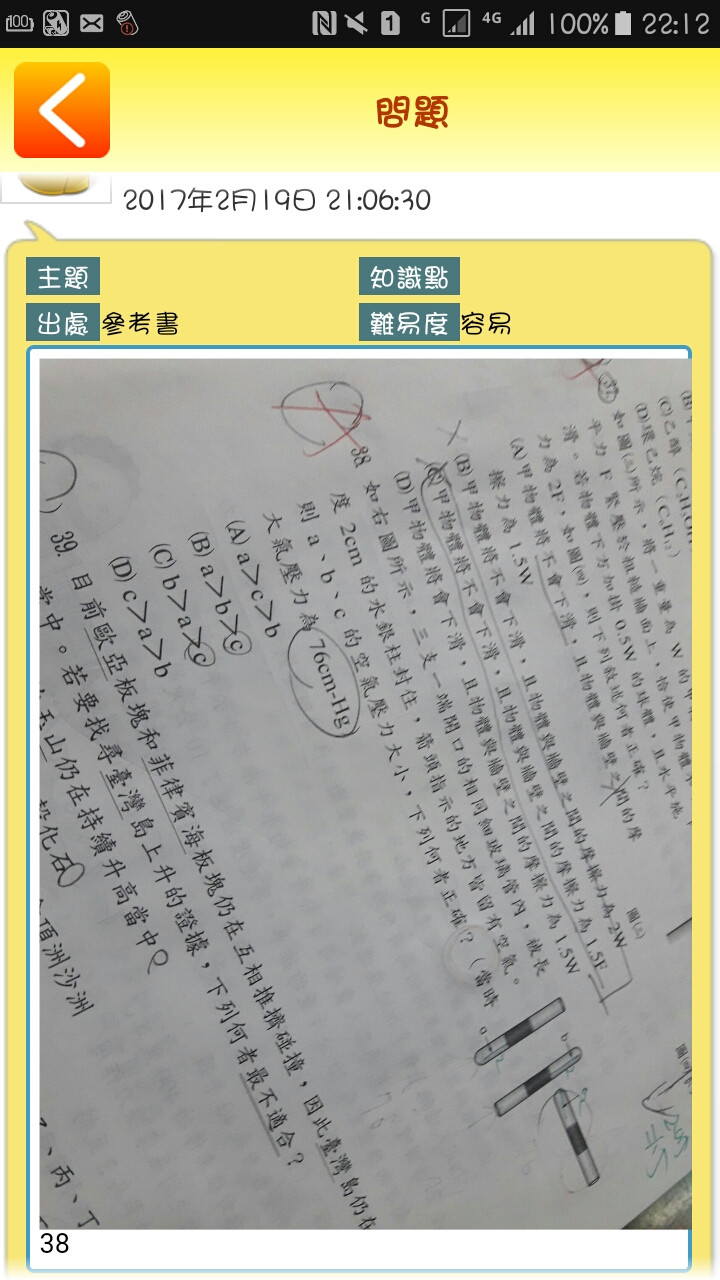 100
1
G
4G
100%
22:12
問題
2017年2月19日 21:06:30
主題
知識點
出處 參考書
難易度 容易
(C)乙醇 (C₂H₅OH)
(D)環己烷 (C₆H₁₂)
37. 如圖(三)所示,將一重量為 W 的甲
平力 F 緊壓於粗糙牆面上,恰使甲物體不
滑。若物體下方加掛 0.5W 的球體,且水平施
力為 2F,如圖(四),則下列敘述何者正確?
(A)甲物體將不會下滑,且物體與牆壁之間的摩
擦力為 1.5W
(B)甲物體將不會下滑,且物體與牆壁之間的摩擦力為 2W
(C)甲物體將不會下滑,且物體與牆壁之間的摩擦力為 1.5F
(D)甲物體將會下滑,且物體與牆壁之間的摩擦力為 1.5W
圖(三)
圖(四)
38. 如右圖所示,三支一端開口的相同細玻璃管內,被長
度 2cm 的水銀柱封住,箭頭指示的地方皆留有空氣。
則 a、b、c 的空氣壓力大小,下列何者正確?(當時
大氣壓力為 76cm-Hg)
(A) a>c>b
(B) a>b>c
(C) b>a>c
(D) c>a>b
a
b
39. 目前歐亞板塊和菲律賓海板塊仍在互相推擠碰撞,因此臺灣島仍在
當中。若要找尋臺灣島上升的證據,下列何者最不適合?
玉山仍在持續升高當中
化石
頂洲沙洲
、丙、丁
38